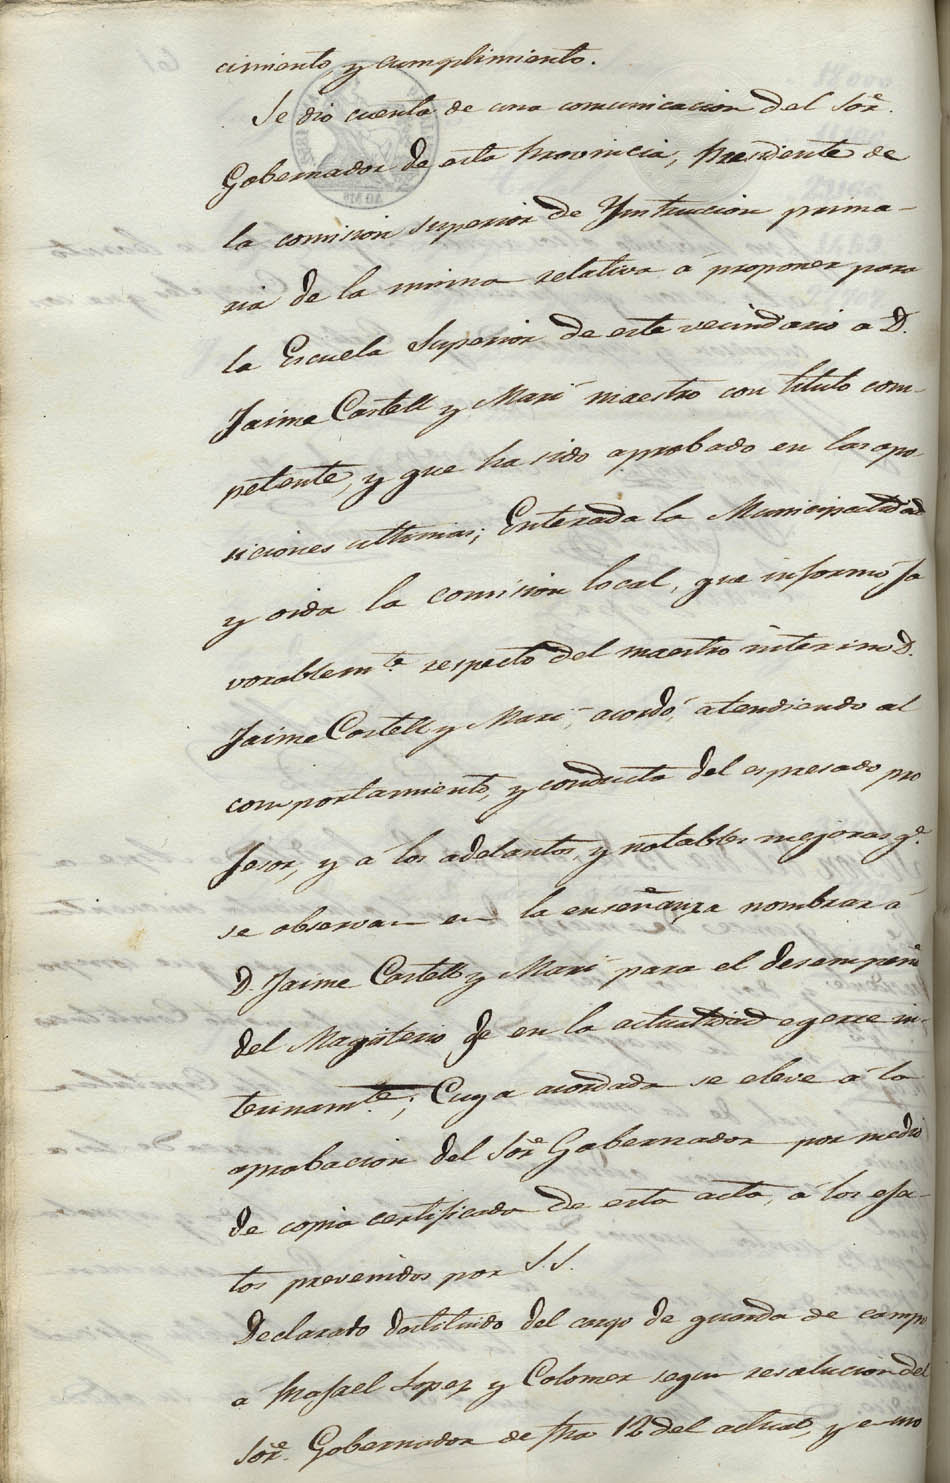 cimiento, y cumplimiento.
Se dio cuenta de una comunicacion del Sor.
Gobernador de esta Provincia, Presidente de
la comision superior de Ynstruccion prima-
ria de la misma relativa á proponer para
la Escuela Superior de este vecindario a D.
Jaime Castell y Mari maestro con titulo com-
petente, y que ha sido aprobado en las opo-
siciones ultimas; Enterada la Municipalidad
y oida la comision local, que informó fa
vorablemte. respecto del maestro interino D.
Jaime Castell y Mari, acordó, atendiendo al
comportamiento, y conducta del espresado pro
fesor, y á los adelantos, y notables mejoras qe.
se observan en la enseñanza nombrar á
D. Jaime Castell y Mari para el desempeño
del Magisterio qe en la actualidad egerce in-
terinamte.; Cuya acordada se eleve á la
aprobacion del Sor. Gobernador por medio
de copia certificada de esta acta, á los efec-
tos prevenidos por S.S.
Declarado destituido del cargo de guarda de campo
á Rafael Lopez y Colomer segun resolucion del
Sor. Gobernador de fha 12 del actual, y en no